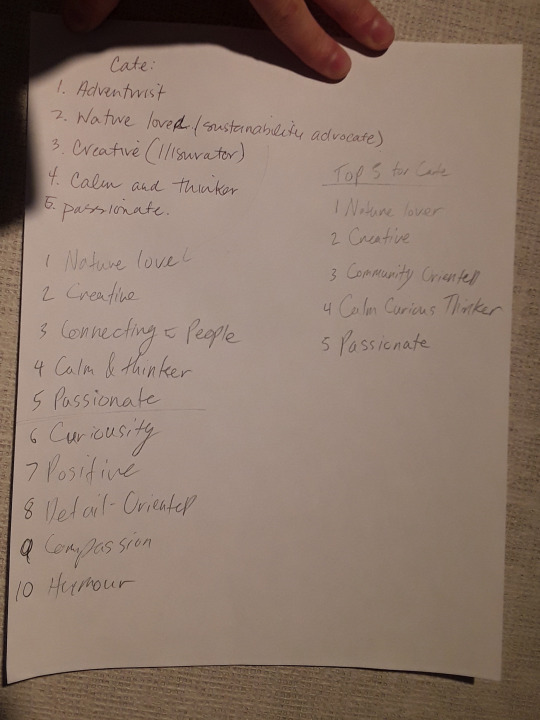 Cate:
1. Adventurist
2. Nature lover (sustainability advocate)
3. Creative (illsurator)
4. Calm and thinker
5. passionate.
1 Nature lover
2 Creative
3 Connecting People
4 Calm & thinker
5 Passionate
6 Curiousity
7 Positive
8 Detail-Oriented
9 Compassion
10 Humour
Top 5 for Cate
1 Nature lover
2 Creative
3 Community Oriented
4 Calm Curious Thinker
5 Passionate